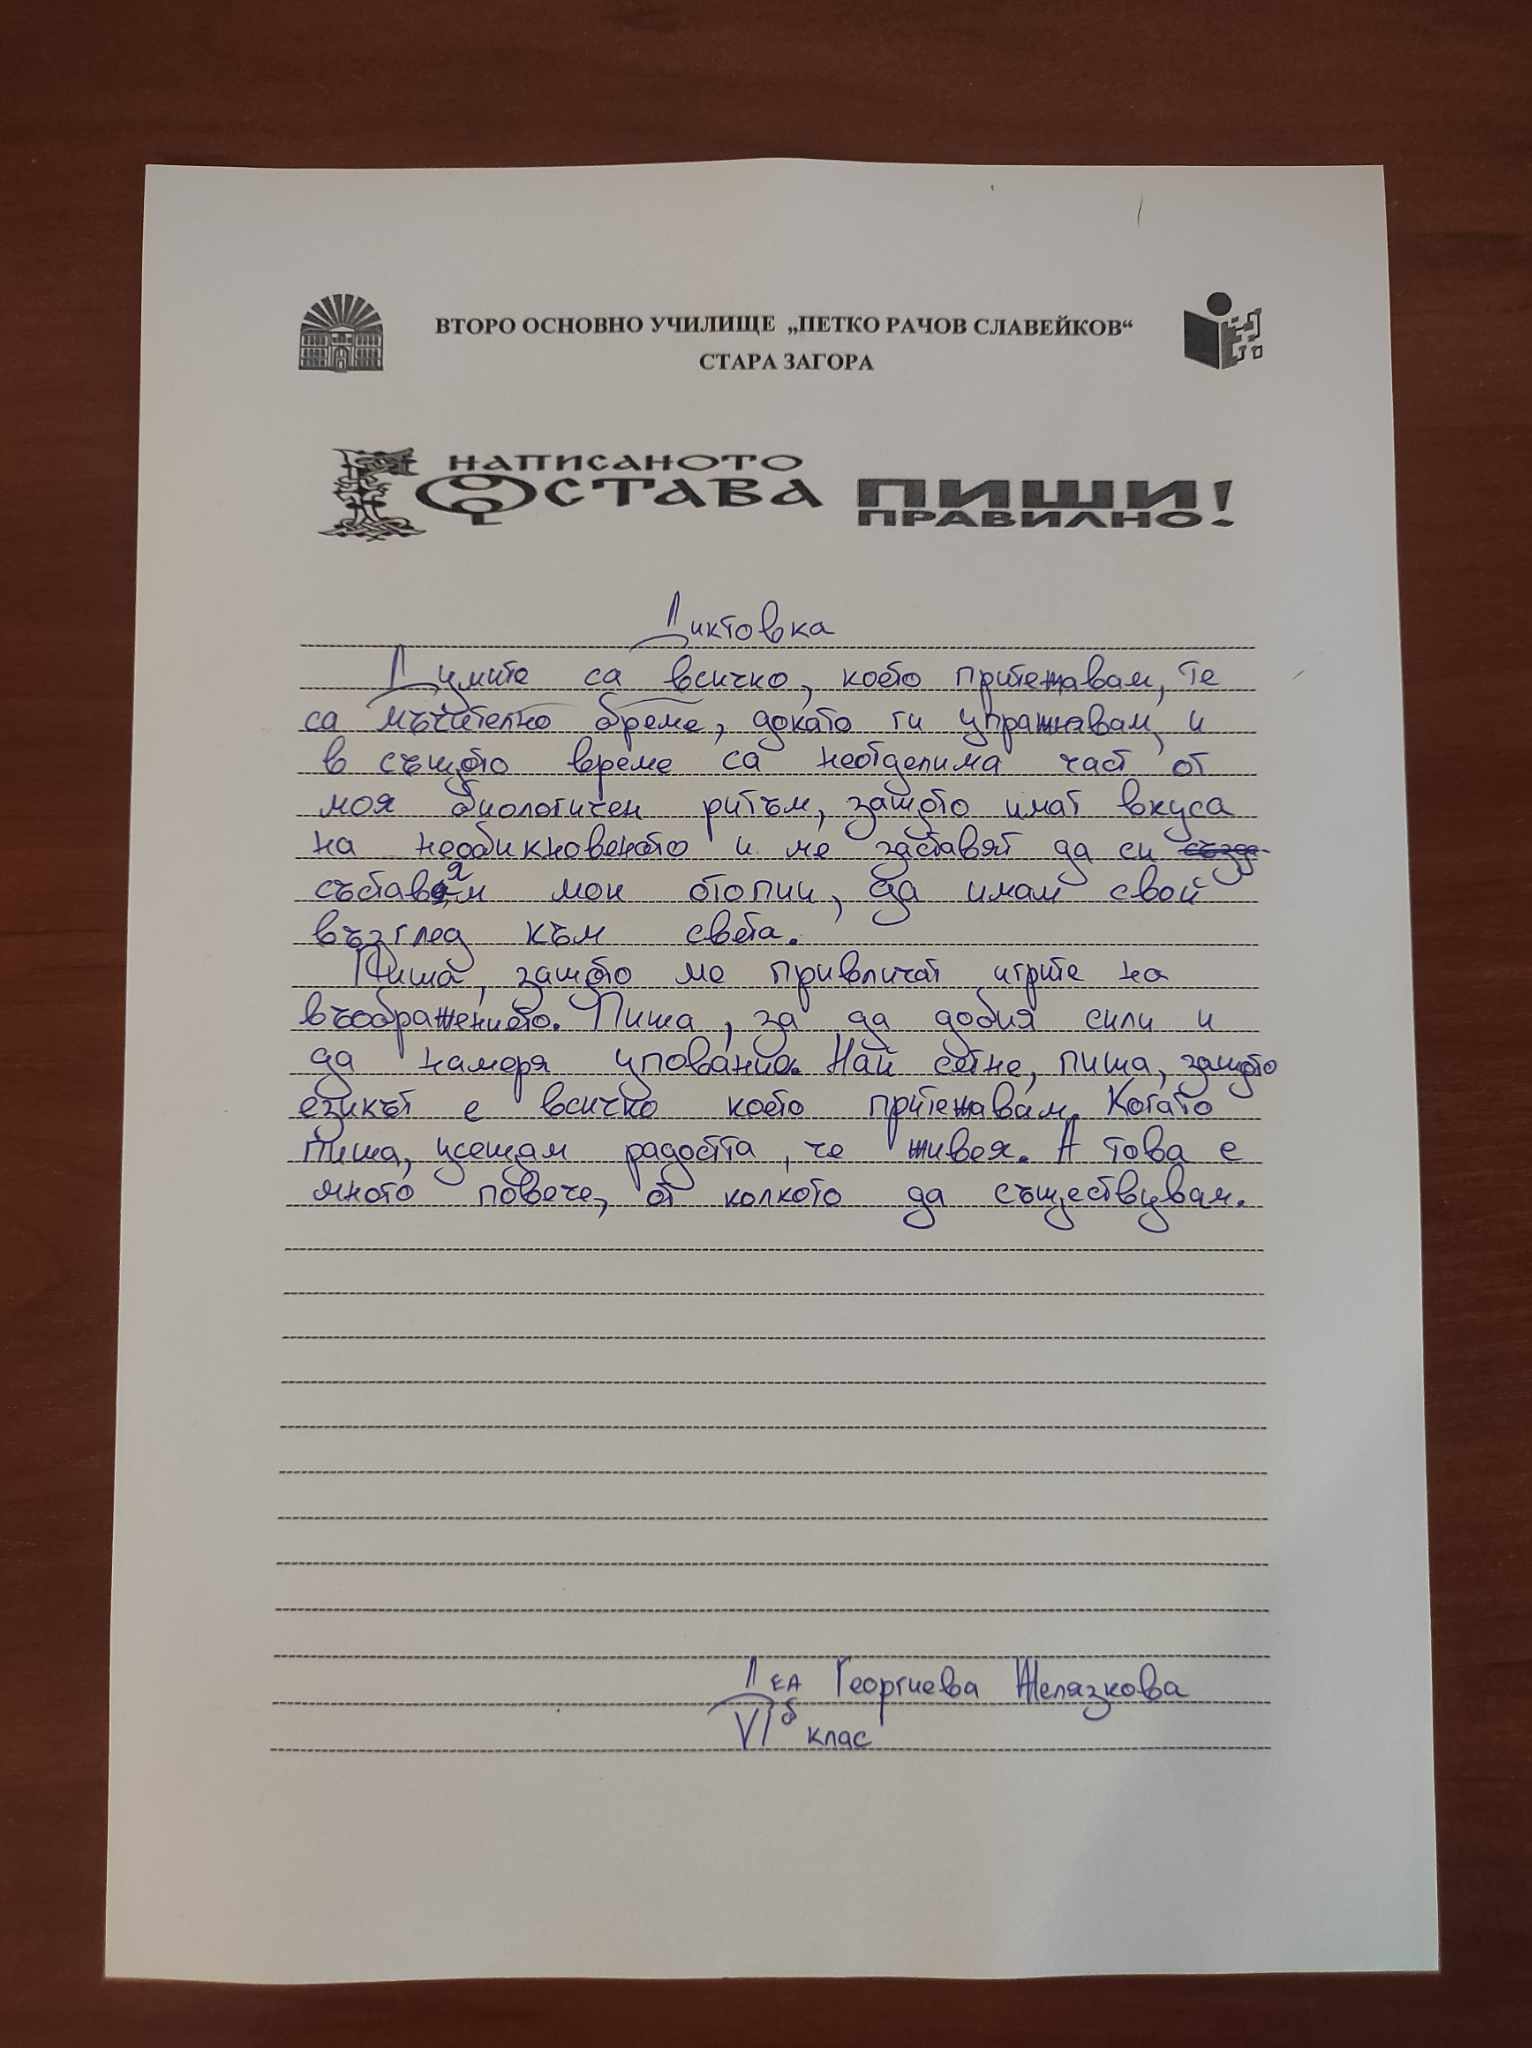 ВТОРО ОСНОВНО УЧИЛИЩЕ „ПЕТКО РАЧОВ СЛАВЕЙКОВ“
СТАРА ЗАГОРА
НАПИСАНОТО
ОСТАВА
ПИШИ
ПРАВИЛНО!
Диктовка
Думите са всичко, което притежавам, Те
са мъчително бреме, докато ги упражнявам, и
в същото време са неотделима част от
моя биологичен ритъм, защото имат вкуса
на необикновеното и ме заставят да си създа
съставям мои отопии, да имам свой
възглед към света.
Пиша, защото ме привличат игрите на
въображението. Пиша, за да добия сили и
да намеря упование. Най сетне, пиша, защото
езикът е всичко което притежавам. Когато
пиша, усещам радостта, че живея. А това е
много повече, от колкото да съществувам.
Леа Георгиева Желязкова
VI б клас